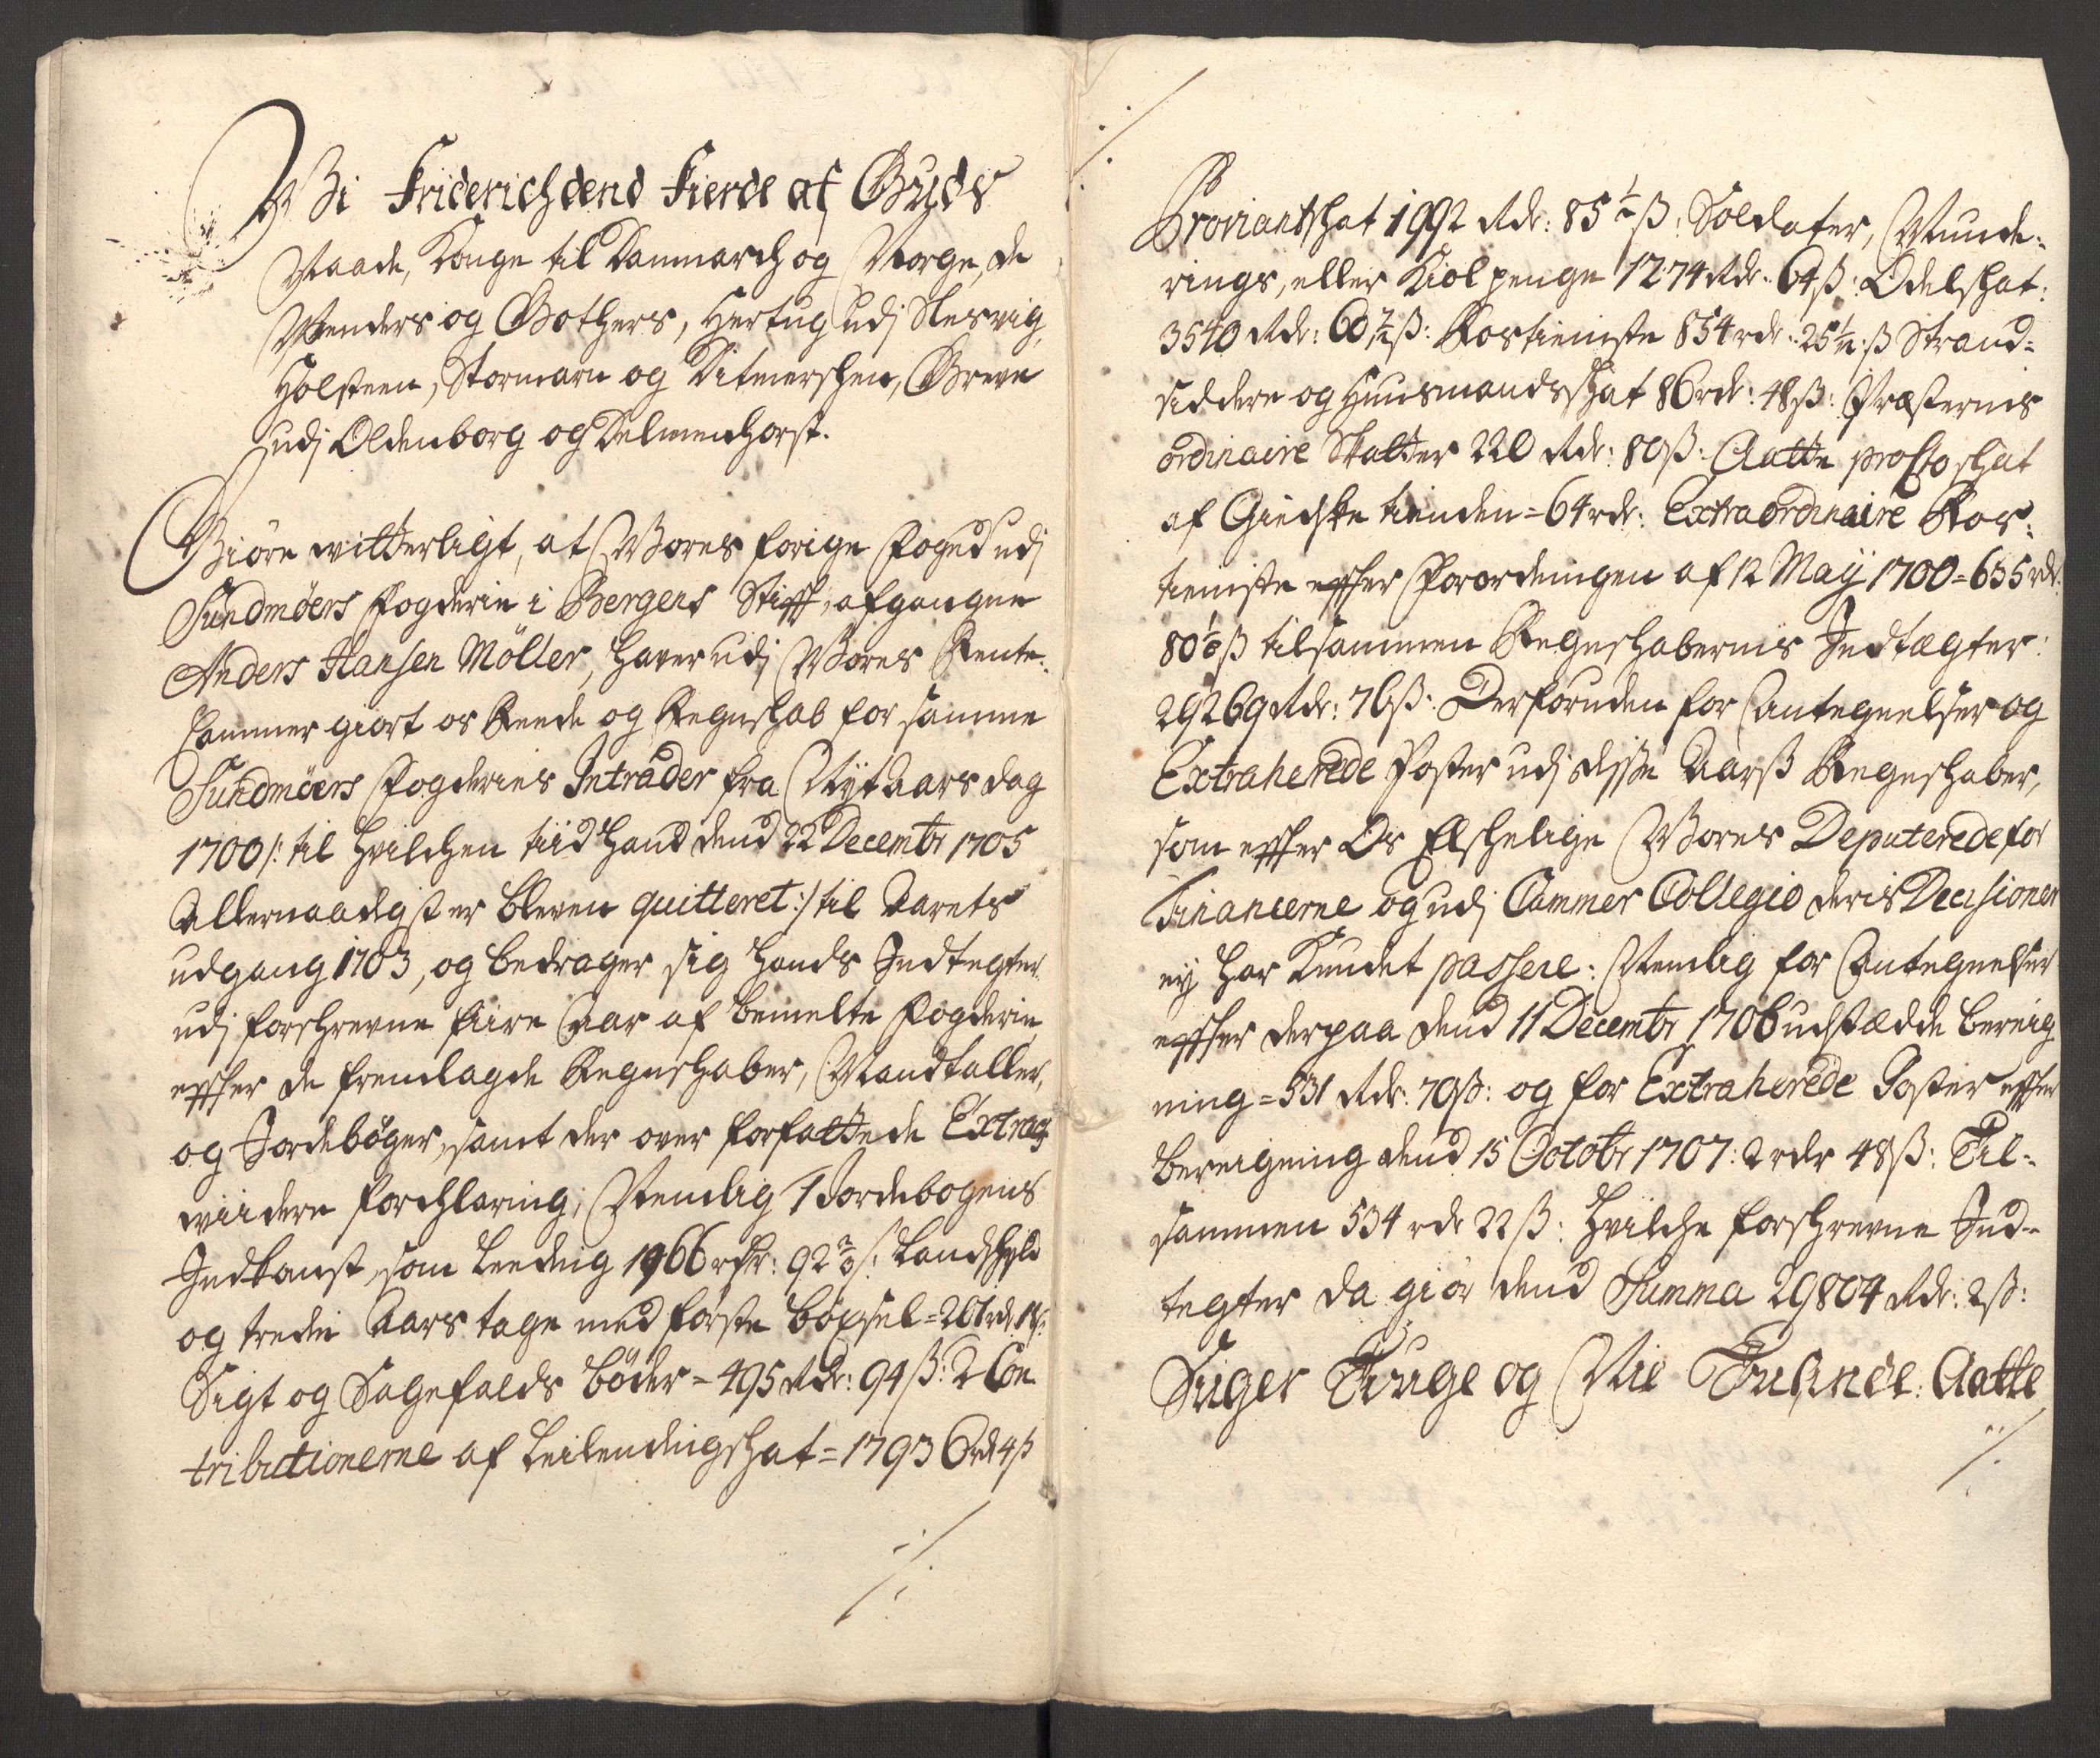 Wi Friderich dend Fierde af Guds
Naade, Konge til Danmarch og Norge, de
Wenders og Gothers, Hertug udj Slesvig,
Holsteen, Stormarn og Ditmerschen, Greve
udj Oldenborg og Delmenhorst.
Giöre witterligt, at Wores forige Foged udj
Sundmöers Fogderie i Bergens Stifft, afgangne
Anders Hansen Möller, hafver udj Wores Rente-
Cammer giort os Reede og Regnschab for samme
Sundmöers Fogderies Intrader fra Nyt Aars dag
1700 /: til hvilchen tiid hand dend 22 Decembr 1705
Allernaadigst er bleven quitteret :/ til Aarets
udgang 1703, og bedrager sig hands Indtegter
udj forschrevne fiire Aar af bemelte Fogderie,
effter de fremlagde Regnschaber, Mandtaller,
og Jordeböger, samt der over forfattede Extracts
wiidere forchlaring; Nemlig 1 Jordebogens
Indkomst, som Leeding 1966 rdr: 92 2/3 ß: Landschyld
og tredie Aars tage med förste böxsel = 261 rdr 1 ß:
Sigt og Sagefalds böder = 495 Rdr: 94 ß: 2 Con
tributionerne af Leilendingschat = 17936 rd 4 ß
./.
./.
Proviantschat 1992 Rdr: 85 1/2 ß: Soldater, Munde-
rings, eller Kiolpenge 1274 Rdr: 64 ß: Odelschat:
3540 Rdr: 60 1/2 ß: Rostieniste 854 rdr: 25 1/2 ß Strand-
siddere og Huusmandsschat 86 rdr: 48 ß: Præsternis
ordinaire Skatter 220 Rdr: 80 ß: Aatte pro Cto schat
af Giedske tienden = 64 rdr: Extraordinaire Ros-
tieniste effter Forordningen af 12 Maij 1700 = 655 rdr.
80 1/8 ß tilsammen Regnschabernis Indtægter:
29269 Rdr: 76 ß: Derforuden for Antegnelser og
Extraherede Poster udj disse Aarß Regnschaber,
som effter Os Elschelige Wores Deputerede for
Financerne og udj Cammer Collegio deris Decisioner
ej har kundet passere: Nemlig for Antegnelser
effter derpaa dend 11 Decembr 1706 udstædde bereig
ning = 531 Rdr. 70 ß: og for Extraherede Poster effter
bereigning dend 15 Octobr 1707: 2 rdr 48 ß: Til-
sammen 534 rdr 22 ß: Hvilche forschrevne Ind-
tegter da giör dend Summa 29804 Rdr: 2 ß:
Siger Tiuge og Nie Tusinde: Aatte
./.